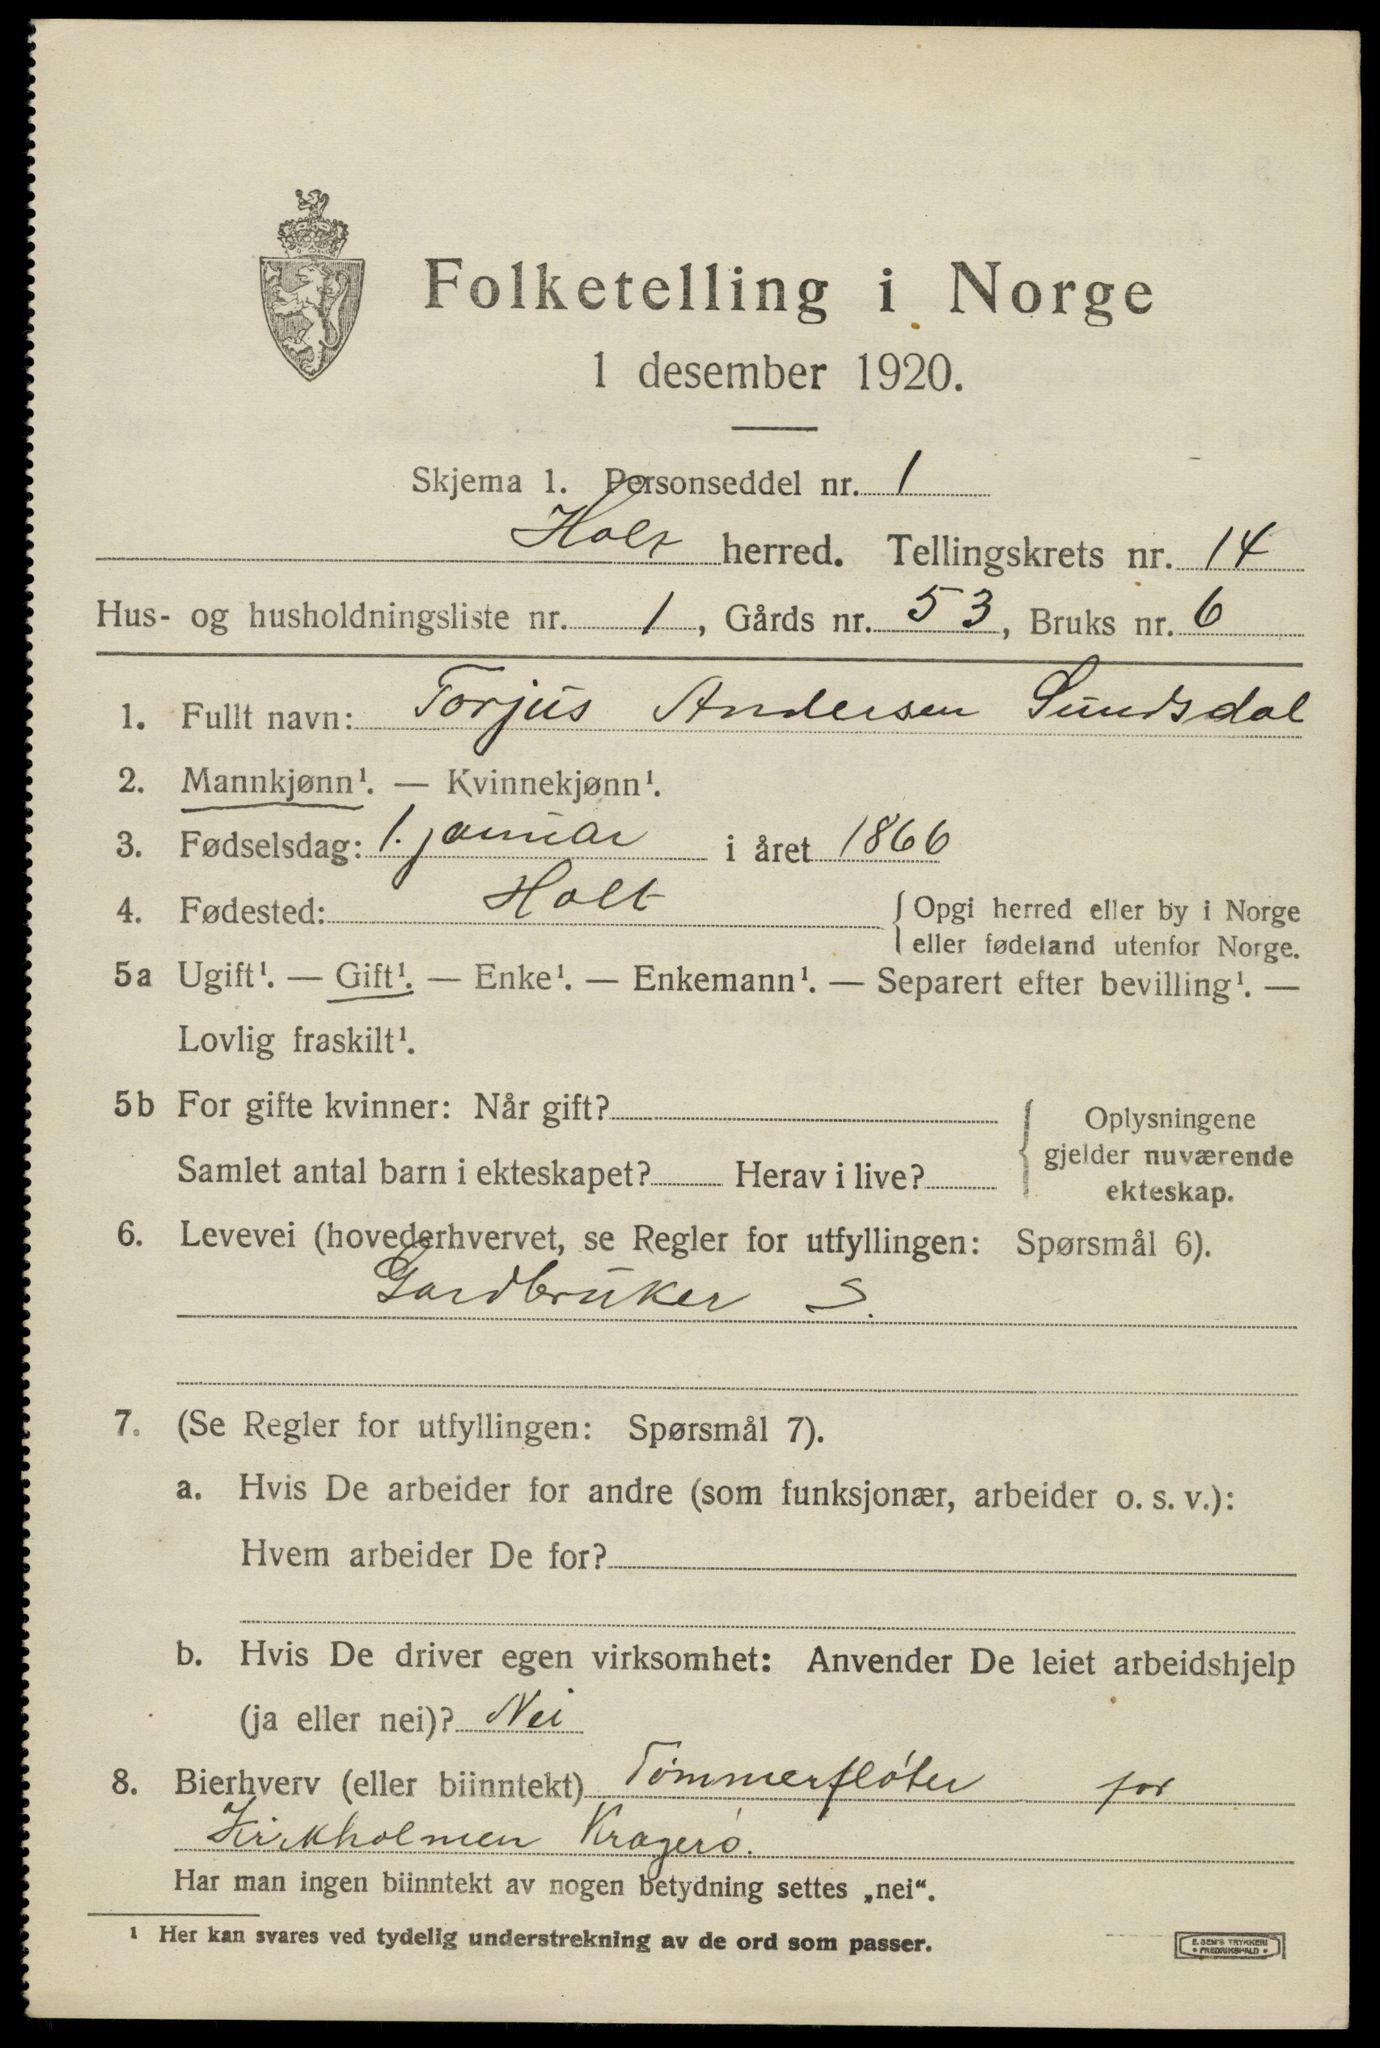 Folketelling i Norge
1 desember 1920.
Skjema 1. Personseddel nr. 1
Holt herred. Tellingskrets nr. 14
Hus- og husholdningsliste nr. 1, Gårds nr. 53, Bruks nr. 6
1. Fullt navn: Torjus Andersen Sundsdal
2. Mannkjønn¹. — Kvinnekjønn¹.
3. Fødselsdag: 1. januar i året 1866
4. Fødested: Holt { Opgi herred eller by i Norge
eller fødeland utenfor Norge.
5a Ugift¹. — Gift¹. — Enke¹. — Enkemann¹. — Separert efter bevilling¹. —
Lovlig fraskilt¹.
5b For gifte kvinner: Når gift?
Samlet antal barn i ekteskapet? Herav i live?
Oplysningene
gjelder nuværende
ekteskap.
6. Levevei (hovederhvervet, se Regler for utfyllingen: Spørsmål 6).
Gardbruker S.
7. (Se Regler for utfyllingen: Spørsmål 7).
a. Hvis De arbeider for andre (som funksjonær, arbeider o. s. v.):
Hvem arbeider De for?
b. Hvis De driver egen virksomhet: Anvender De leiet arbeidshjelp
(ja eller nei)? Nei
8. Bierhverv (eller biinntekt) Tømmerfløter for
Kirkholmen Kragerø.
Har man ingen biinntekt av nogen betydning settes „nei“.
¹ Her kan svares ved tydelig understrekning av de ord som passer.
E. SEM'S TRYKKERI
FREDRIKSHALD